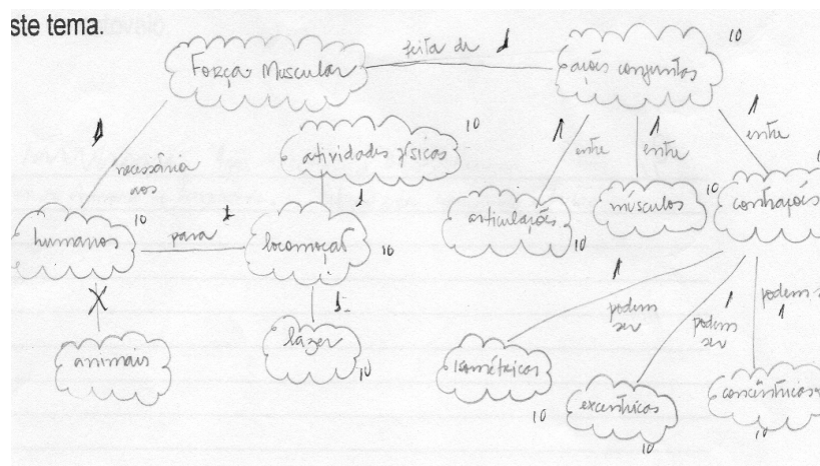 ste tema.
Força Muscular
feita de
1
ações conjuntas
10
1
necessária
aos
atividades físicas
10
1
entre
1
entre
1
entre
humanos
10
para
1
locomoção
10
1
articulações
10
músculos
10
contrações
X
animais
1
lazer
10
1
podem
ser
1
podem
ser
podem s
1
isométricas
10
excentricas
10
concêntricas
10